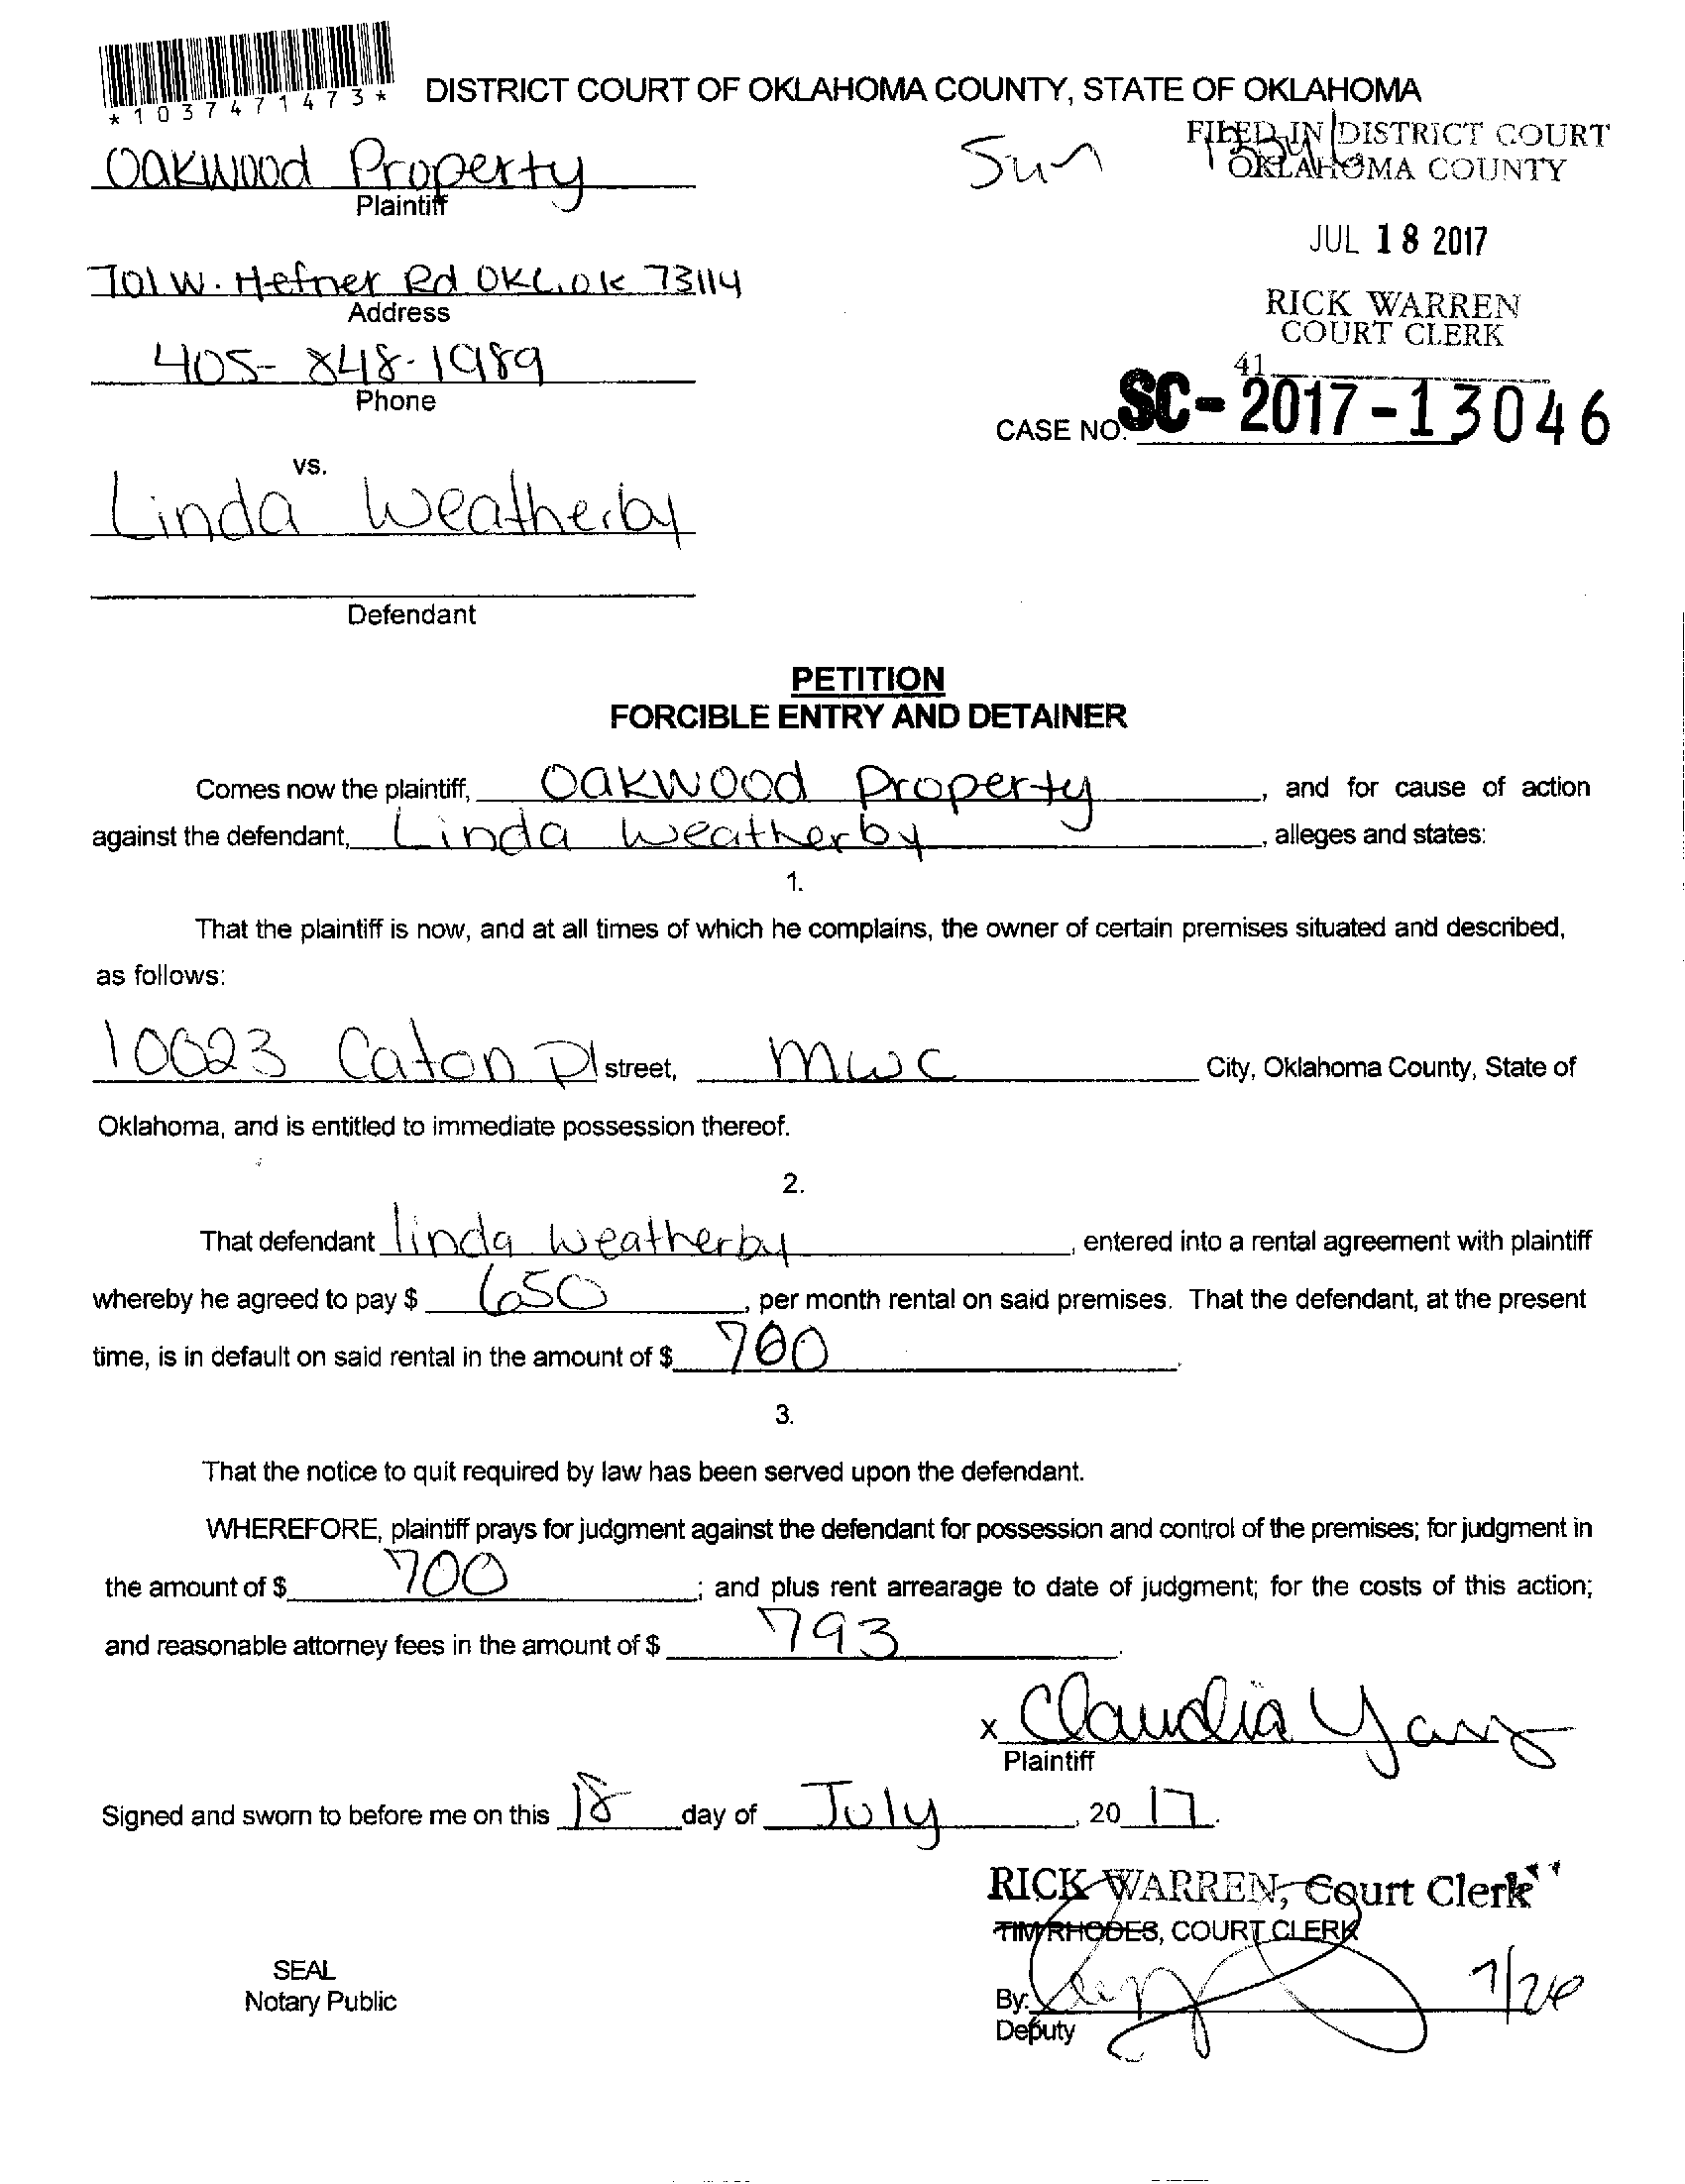 *1037471473*
DISTRICT COURT OF OKLAHOMA COUNTY, STATE OF OKLAHOMA
Oakwood Property
Plaintiff
Sun
FILED IN DISTRICT COURT
OKLAHOMA COUNTY
JUL 18 2017
RICK WARREN
COURT CLERK
41
701 W. Hefner Rd OKC, OK 73114
Address
405-848-1989
Phone
CASE NO. SC-2017-13046
vs.
Linda Weatherby
Defendant
PETITION
FORCIBLE ENTRY AND DETAINER
Comes now the plaintiff, Oakwood Property, and for cause of action
against the defendant, Linda Weatherby, alleges and states:
1.
That the plaintiff is now, and at all times of which he complains, the owner of certain premises situated and described,
as follows:
Caton Pl street, MWC City, Oklahoma County, State of
Oklahoma, and is entitled to immediate possession thereof.
2.
That defendant linda weatherby, entered into a rental agreement with plaintiff
whereby he agreed to pay $ 650, per month rental on said premises. That the defendant, at the present
time, is in default on said rental in the amount of $ 700.
3.
That the notice to quit required by law has been served upon the defendant.
WHEREFORE, plaintiff prays for judgment against the defendant for possession and control of the premises; for judgment in
the amount of $ 700; and plus rent arrearage to date of judgment; for the costs of this action;
and reasonable attorney fees in the amount of $ 793.
x Claudia
Plaintiff
Signed and sworn to before me on this 18 day of July, 20 17.
RICK WARREN, Court Clerk
TIM RHODES, COURT CLERK
SEAL
Notary Public
By:
Deputy